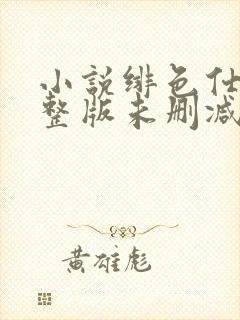 小説绯色仕
整版未删减
黄雄彪